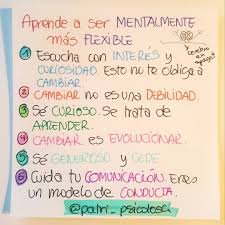 Aprende a ser MENTALMENTE
más FLEXIBLE
1 Escucha con INTERÉS y
CURIOSIDAD. Esto no te obliga a
CAMBIAR
2 CAMBIAR no es una DEBILIDAD.
3 Sé CURIOSO. Se trata de
APRENDER.
4 CAMBIAR es EVOLUCIONAR.
5 SÉ GENEROSO y CEDE
6 Cuida tu COMUNICACIÓN. Eres
un MODELO de CONDUCTA.
@patri_psicologa
cerebro en